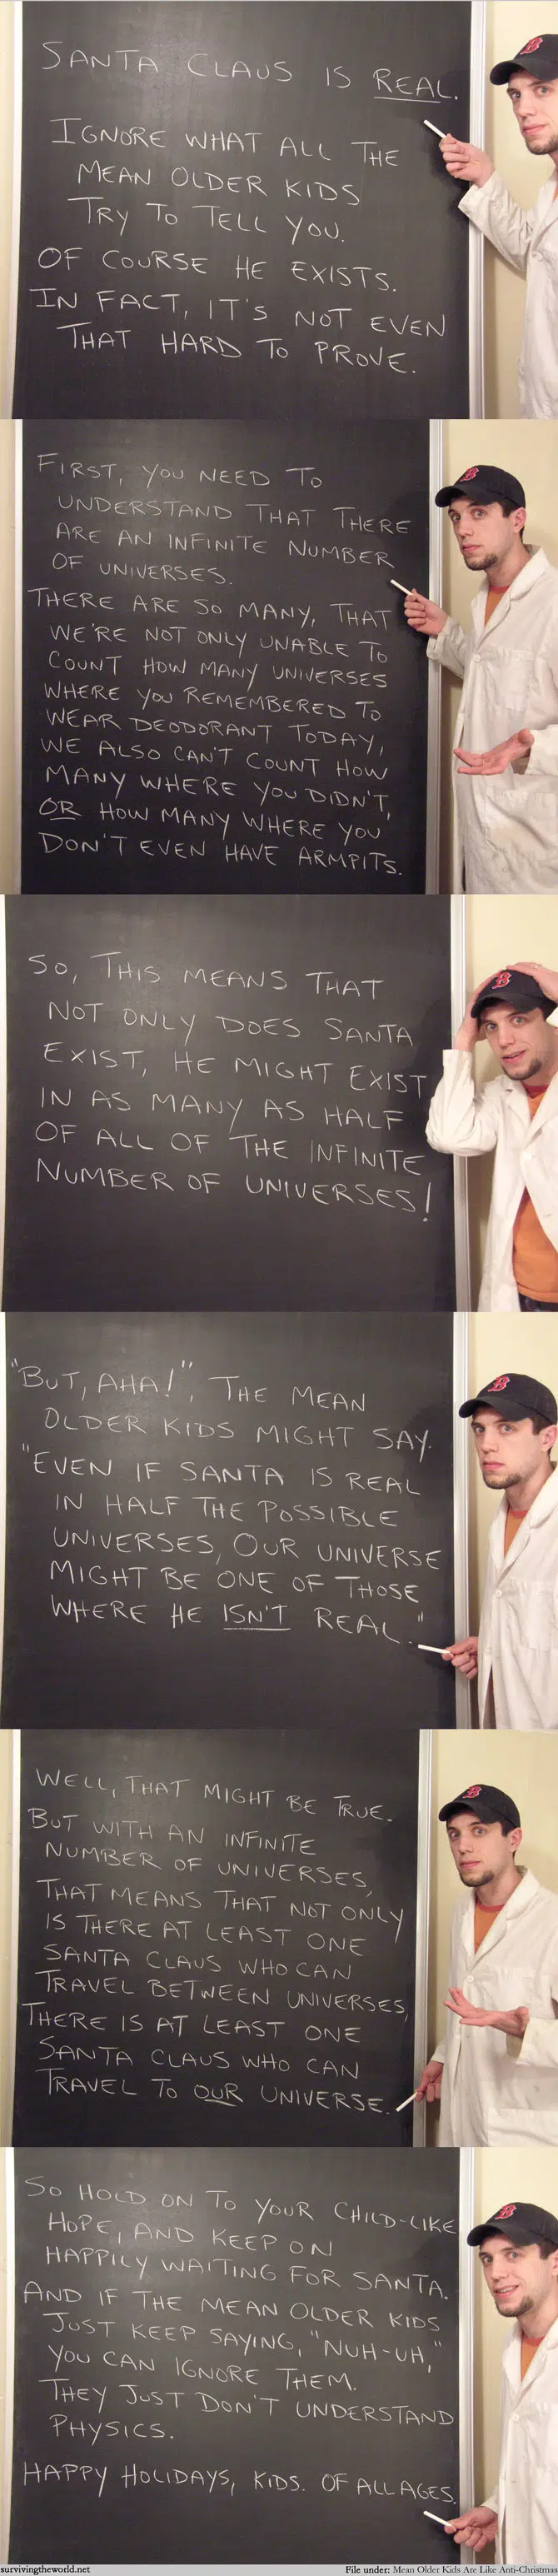 SANTA CLAUS IS REAL.
IGNORE WHAT ALL THE
MEAN OLDER KIDS
TRY TO TELL YOU.
OF COURSE HE EXISTS.
IN FACT, IT'S NOT EVEN
THAT HARD TO PROVE.
B
FIRST, YOU NEED TO
UNDERSTAND THAT THERE
ARE AN INFINITE NUMBER
OF UNIVERSES.
THERE ARE SO MANY, THAT
WE'RE NOT ONLY UNABLE TO
COUNT HOW MANY UNIVERSES
WHERE YOU REMEMBERED TO
WEAR DEODORANT TODAY,
WE ALSO CAN'T COUNT HOW
MANY WHERE YOU DIDN'T,
OR HOW MANY WHERE YOU
DON'T EVEN HAVE ARMPITS.
B
SO, THIS MEANS THAT
NOT ONLY DOES SANTA
EXIST, HE MIGHT EXIST
IN AS MANY AS HALF
OF ALL OF THE INFINITE
NUMBER OF UNIVERSES!
B
"BUT, AHA!", THE MEAN
OLDER KIDS MIGHT SAY.
"EVEN IF SANTA IS REAL
IN HALF THE POSSIBLE
UNIVERSES, OUR UNIVERSE
MIGHT BE ONE OF THOSE
WHERE HE ISN'T REAL."
B
WELL, THAT MIGHT BE TRUE.
BUT WITH AN INFINITE
NUMBER OF UNIVERSES,
THAT MEANS THAT NOT ONLY
IS THERE AT LEAST ONE
SANTA CLAUS WHO CAN
TRAVEL BETWEEN UNIVERSES,
THERE IS AT LEAST ONE
SANTA CLAUS WHO CAN
TRAVEL TO OUR UNIVERSE.
B
SO HOLD ON TO YOUR CHILD-LIKE
HOPE, AND KEEP ON
HAPPILY WAITING FOR SANTA.
AND IF THE MEAN OLDER KIDS
JUST KEEP SAYING, "NUH-UH,"
YOU CAN IGNORE THEM.
THEY JUST DON'T UNDERSTAND
PHYSICS.
HAPPY HOLIDAYS, KIDS. OF ALL AGES.
B
survivingtheworld.net
File under: Mean Older Kids Are Like Anti-Christmas